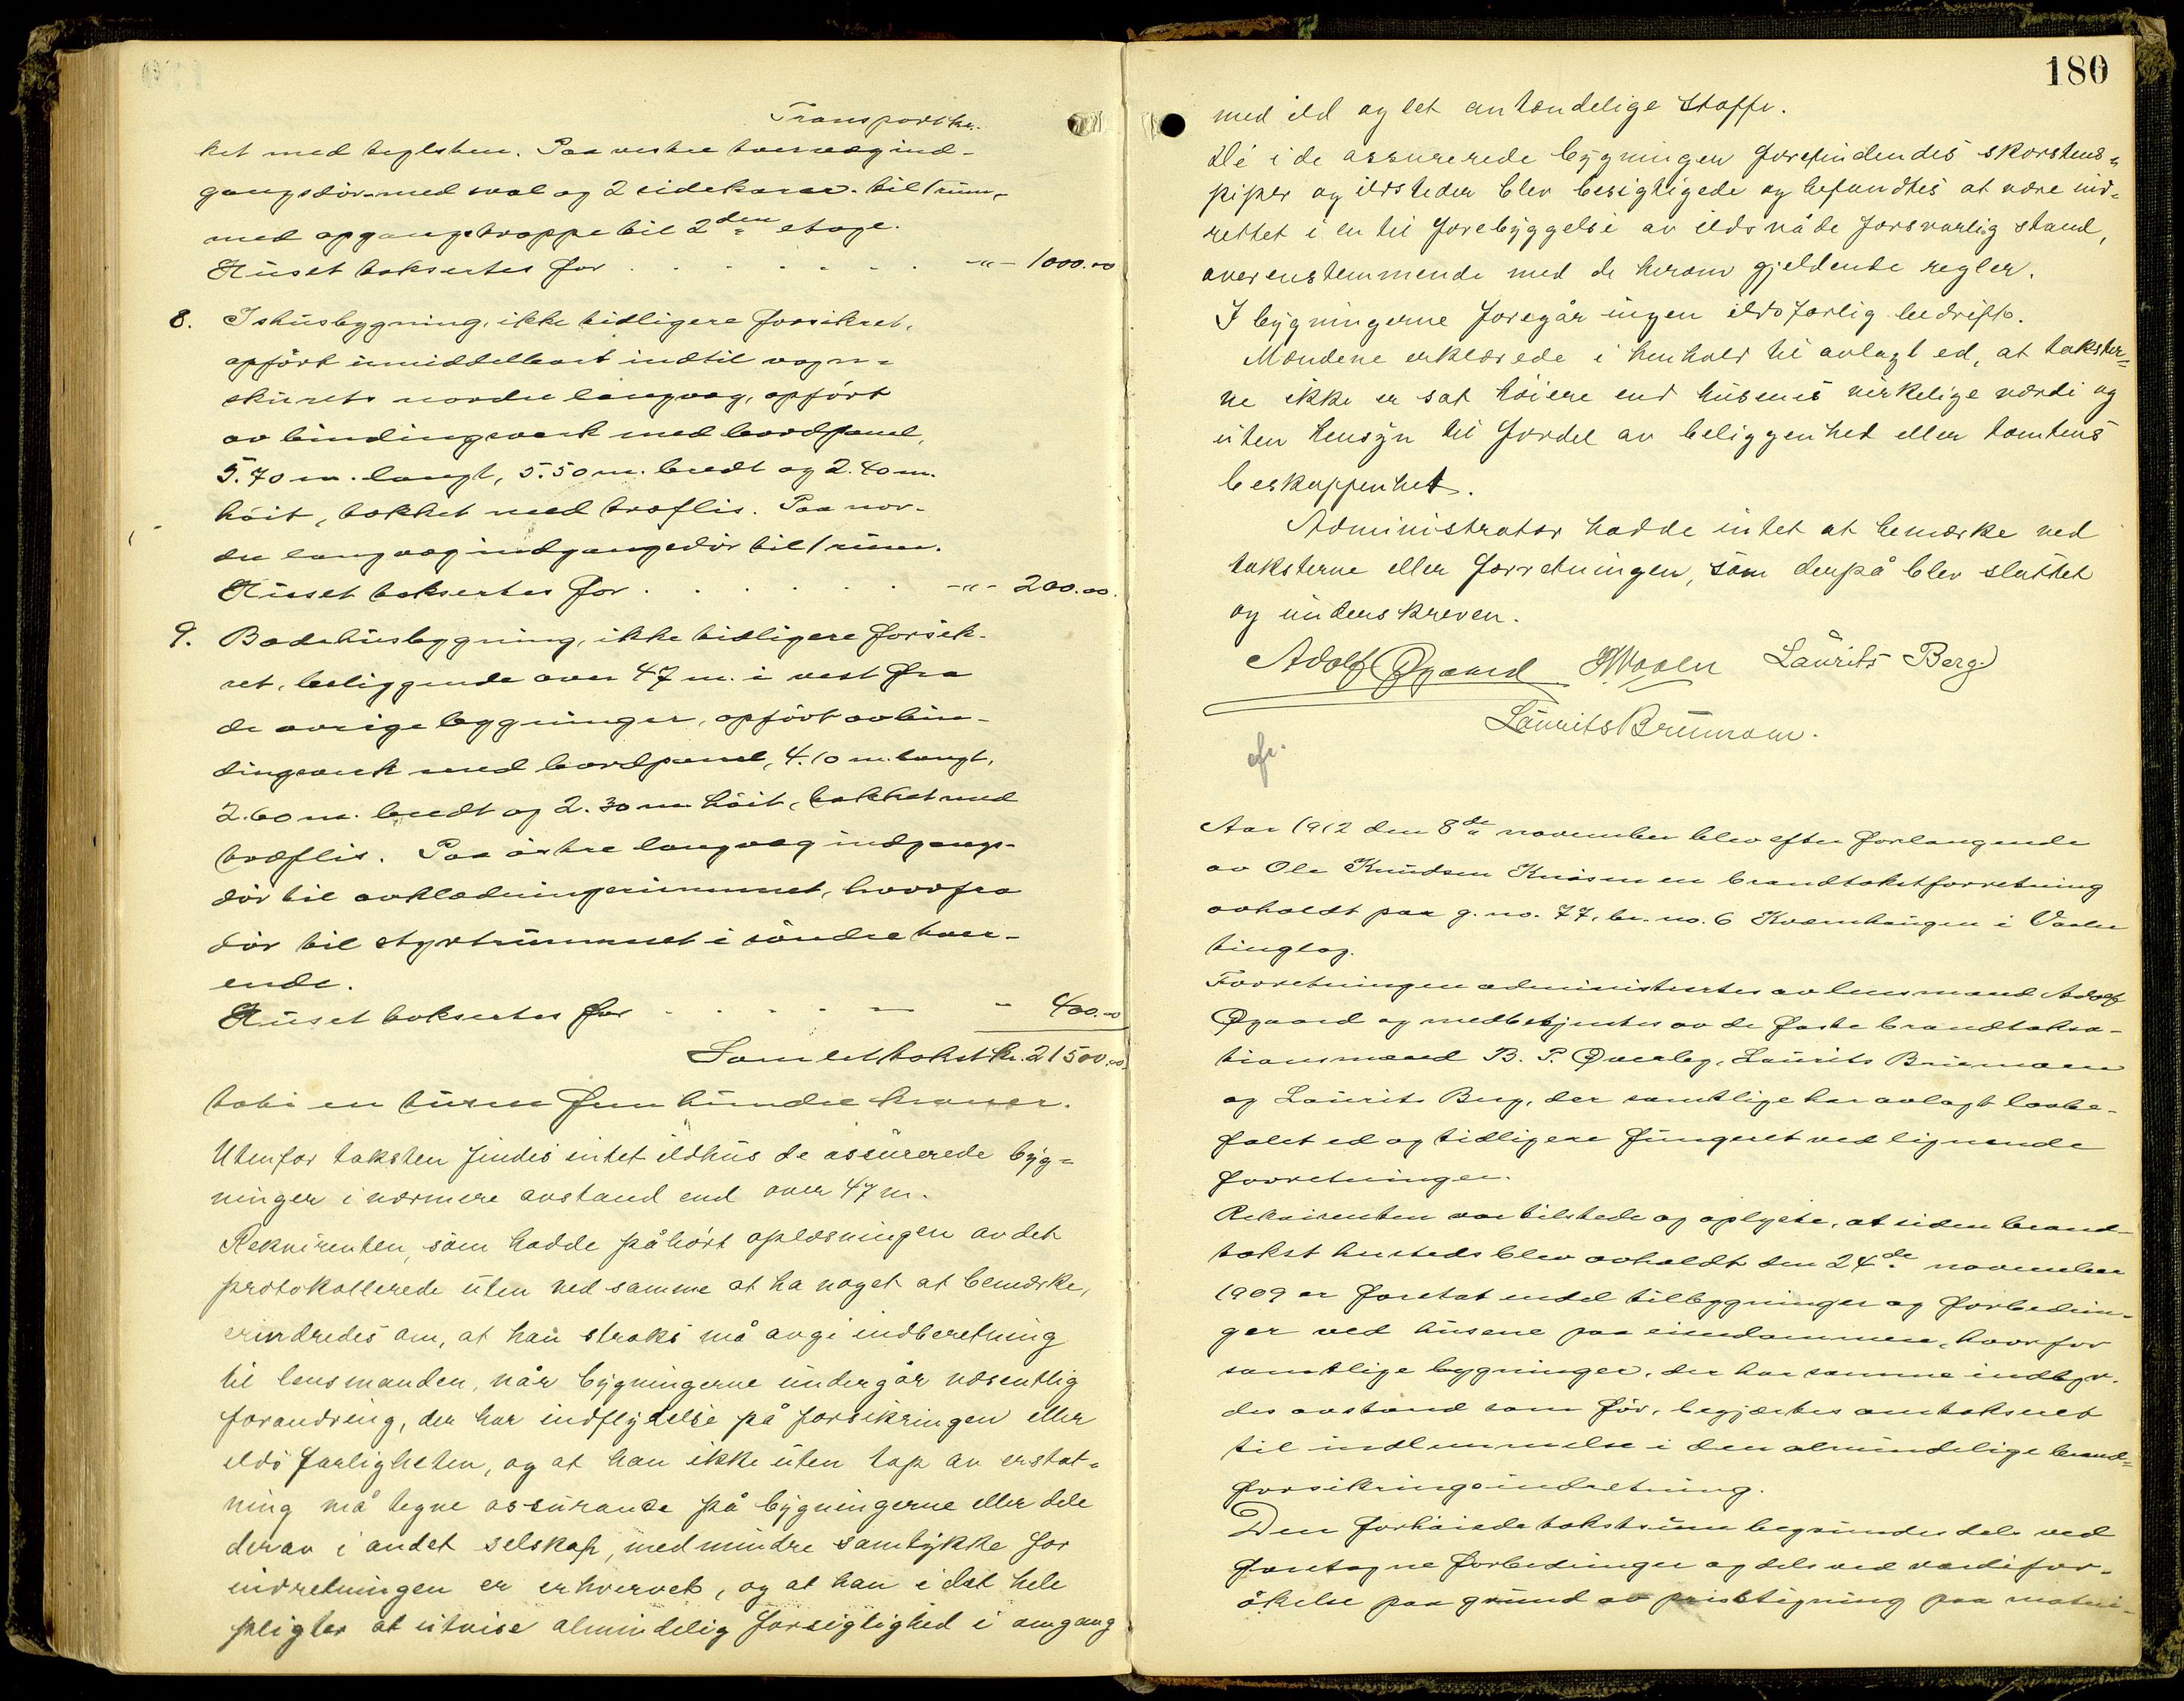 Transport kr.
ket med teglsten. Paa vestre tvervæg ind-
gangsdör med sval og 2 sidekarar. til 1 rum,
med opgangstrappe til 2den etage.
Huset taksertes for . . . . . . . -"- 1000.00
8. Ishusbygning, ikke tidligere forsikret,
opfört umiddelbart indtil vogn-
skurets nordre langvæg, opfört
av bindingsverk med bordpanel,
5.70 m. langt, 5.50 m. bredt og 2.40 m.
höit, tækket med træflis. Paa nor-
dre langvæg indgangsdör til 1 rum.
Huset taksertes for . . . . . . -"- 200.00.
9. Badehusbygning, ikke tidligere forsik-
ret, beliggende over 47 m. i vest fra
de övrige bygninger, opfört av bin-
dingsverk med bordpanel, 4.10 m. langt,
2.60 m. bredt og 2.30 m. höit, tækket med
træflis. Paa östre langvæg indgangs-
dör til avklædningsrummet, hvorfra
dör til styrtrummet i söndre tver-
ende.
Huset taksertes for . . . . — " 400.00
Samlet takst kr. 21500.00.
toti en tusen fem hundre kroner.
Utenfor taksten findes intet ildhus de assurerede byg=
ninger i nærmere avstand end over 47 m.
Rekvirenten, som hadde påhört oplæsningen av det
protokollerede uten ved samme at ha noget at bemærke,
erindredes om, at han straks må avgi indberetning
til lensmanden, når bygningerne undergår væsentlig
forandring, der har indflydelse på forsikringen eller
ildsfarligheten, og at han ikke uten tap av erstat=
ning må tegne assurance på bygningerne eller dele
derav i andet selskap, medmindre samtykke for
indretningen er erhvervet, og at han i det hele
pligter at utvise almindelig forsigtighed i omgang
180
med ild og let antændelige stoffe.
De i de assurerede bygningen forefindendes skorstens=
piper og ildsteder blev besigtigede og befandtes at være ind=
rettet i en til forebyggelse av ildsvåde forsvarlig stand,
overenstemmende med de herom gjeldende regler.
I bygningerne foregår ingen ildsfarlig bedrift.
Mændene erklærede i henhold til avlagt ed, at takster=
ne ikke er sat höiere end husenes virkelige værdi og
uten hensyn til fordel av beliggenhet eller tomtens
beskaffenhet.
Administrator hadde intet at bemærke ved
taksterne eller forretningen, som derpå blev sluttet
og underskreven.
Adolf Øgaard Laurits Berg.
Laurits Brumoen.
efr.
Aar 1912 den 8de november blev efter forlangende
av Ole Knudsen Knusen en brandtakstforretning
avholdt paa g. no. 77, br. no. 6 Kvernhaugen i Vaaler
tinglag.
Forretningen administrertes av lensmand Adolf
Øgaard og medbetjentes av de faste brandtaksa-
tionsmænd B. P. Øverby, Laurits Brumoen
og Laurits Berg, der samtlige har avlagt lovbe-
falet ed og tidligere fungeret ved lignende
forretninger.
Rekvirenten var tilstede og oplyste, at siden brand-
takst hersteds blev avholdt den 24de november
1909 er foretat endel tilbygninger og forbedrin-
ger ved husene paa eiendommen, hvorfor
samtlige bygninger, der har samme indbyr-
des avstand som för, begjærtes omtakseret
til indlemmelse i den almindelige brand=
forsikringsindretning.
Den forhöiede takstsum begrundes dels ved
foretagne forbedringer og dels ved værdifor-
økelse paa grund av prisstigning paa materi-